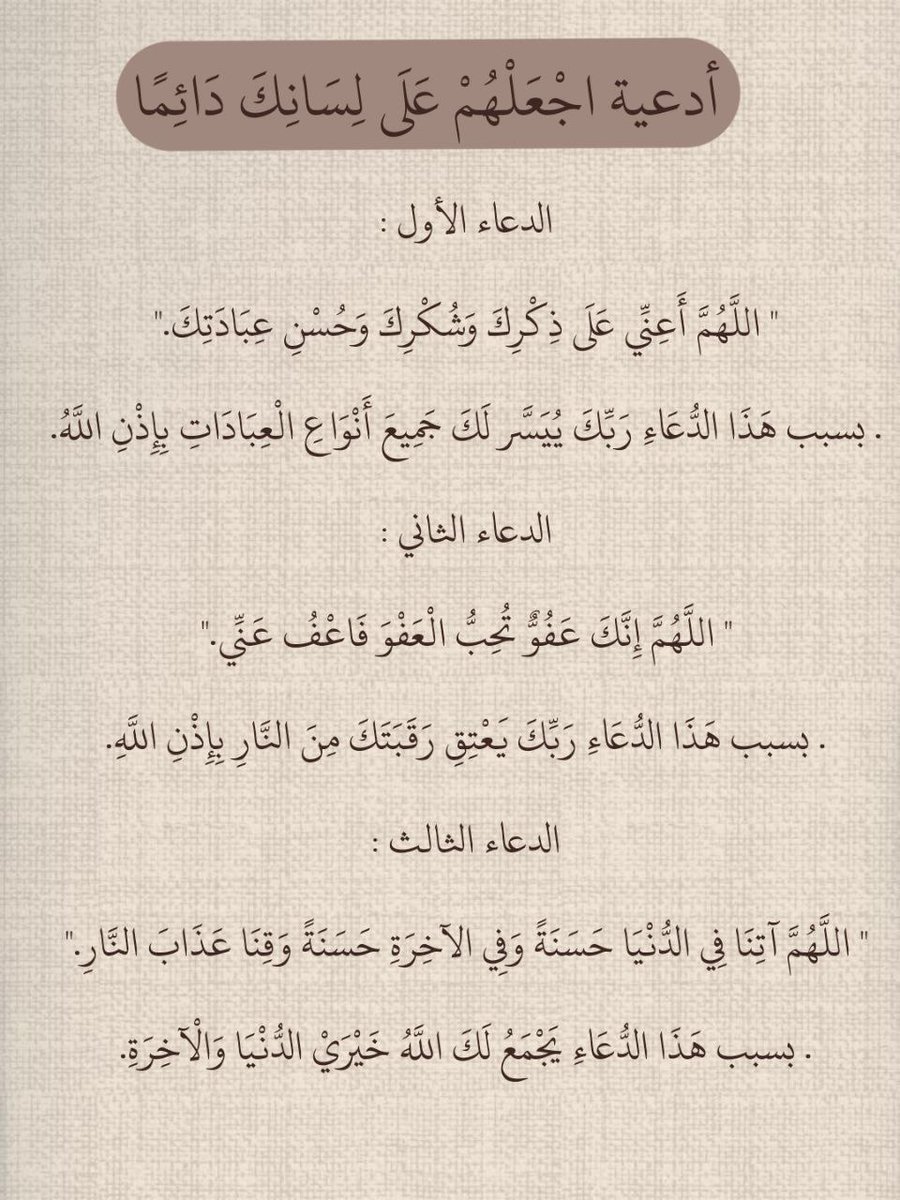 أدعية اجْعَلْهُمْ عَلَى لِسَانِكَ دَائِمًا
الدعاء الأول :
" اللَّهُمَّ أَعِنِّي عَلَى ذِكْرِكَ وَشُكْرِكَ وَحُسْنِ عِبَادَتِكَ."
. بسبب هَذَا الدُّعَاءِ رَبِّكَ يُيَسَّر لَكَ جَمِيعَ أَنْوَاعِ الْعِبَادَاتِ بِإِذْنِ اللَّهُ.
الدعاء الثاني :
" اللَّهُمَّ إِنَّكَ عَفُوٌّ تُحِبُّ الْعَفْوَ فَاعْفُ عَنِّي."
. بسبب هَذَا الدُّعَاءِ رَبِّكَ يَعْتِقِ رَقَبَتَكَ مِنَ النَّارِ بِإِذْنِ اللَّهِ.
الدعاء الثالث :
" اللَّهُمَّ آتِنَا فِي الدُّنْيَا حَسَنَةً وَفِي الآخِرَةِ حَسَنَةً وَقِنَا عَذَابَ النَّارِ."
. بسبب هَذَا الدُّعَاءِ يَجْمَعُ لَكَ اللَّهُ خَيْرَيْ الدُّنْيَا وَالْآخِرَةِ.